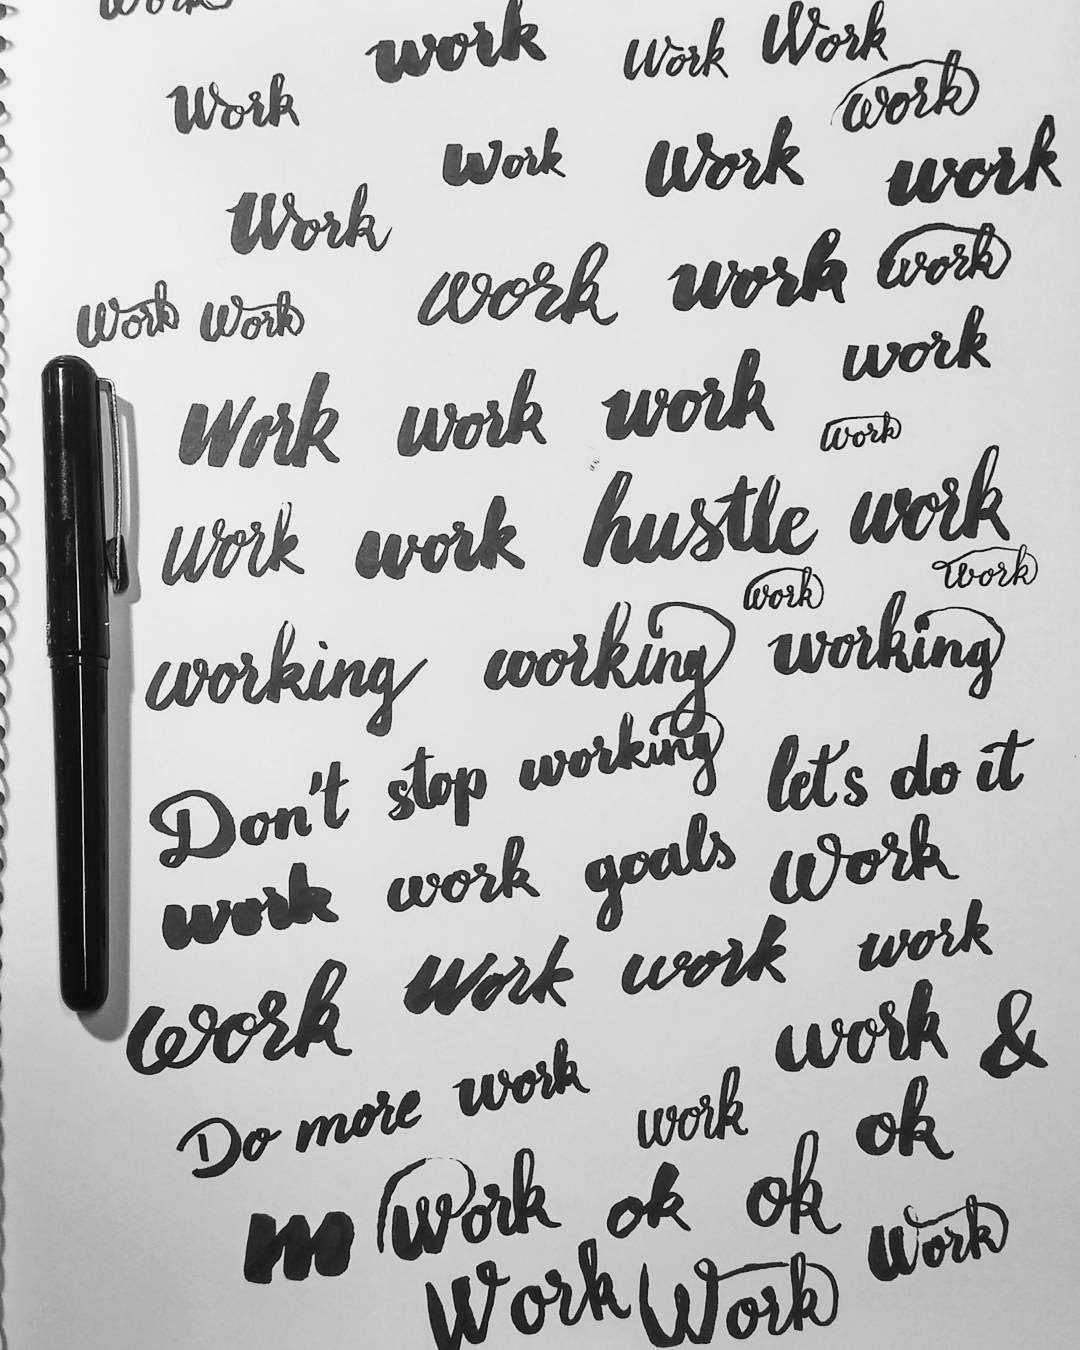 Work
work Work Work
Work work
Work Work work
Work
work work work
Work Work work
Work work work
work
Work work hustle work
work work
working working working
Don't stop working let's do it
work work goals Work
Work Work work work
Do more work work &
work ok
Work ok ok
Work
Work Work